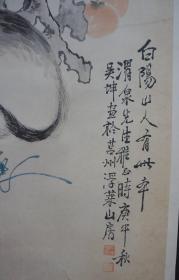 白陽山人有此本
渭泉先生雅正時庚午秋
吳坤画於莒州浮萊山房